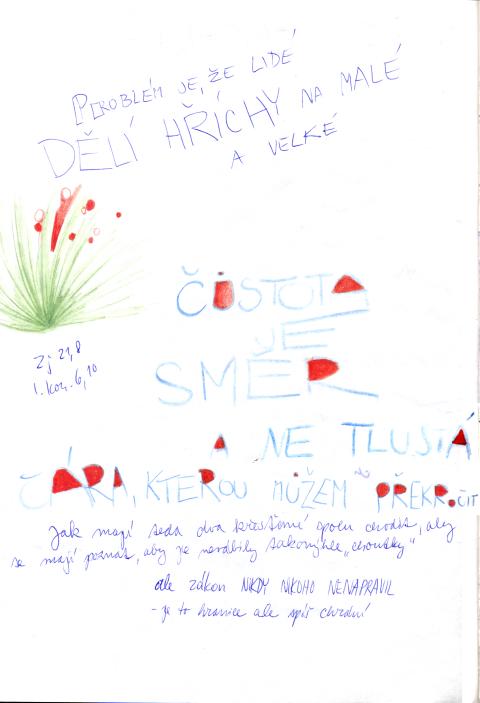 PROBLÉM JE, ŽE LIDÉ
DĚLÍ HŘÍCHY NA MALÉ
A VELKÉ
ČISTOTA
JE
SMĚR
Zj 21,8
1. Kor. 6,10
A NE TLUSTÁ
ČÁRA, KTEROU MŮŽEM PŘEKROČIT
Jak mají dva křesťané spolu chodit, aby
se mají poznat, aby je
ale zákon NIKDY NIKOHO NENAPRAVIL
- je to hranice ale spíš chrání